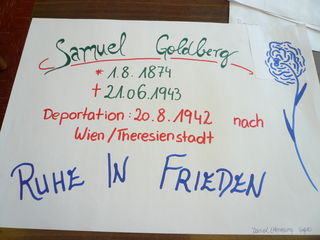 Samuel Goldberg
* 1.8.1874
† 21.06.1943
Deportation: 20.8.1942 nach
Wien/Theresienstadt
RUHE IN FRIEDEN